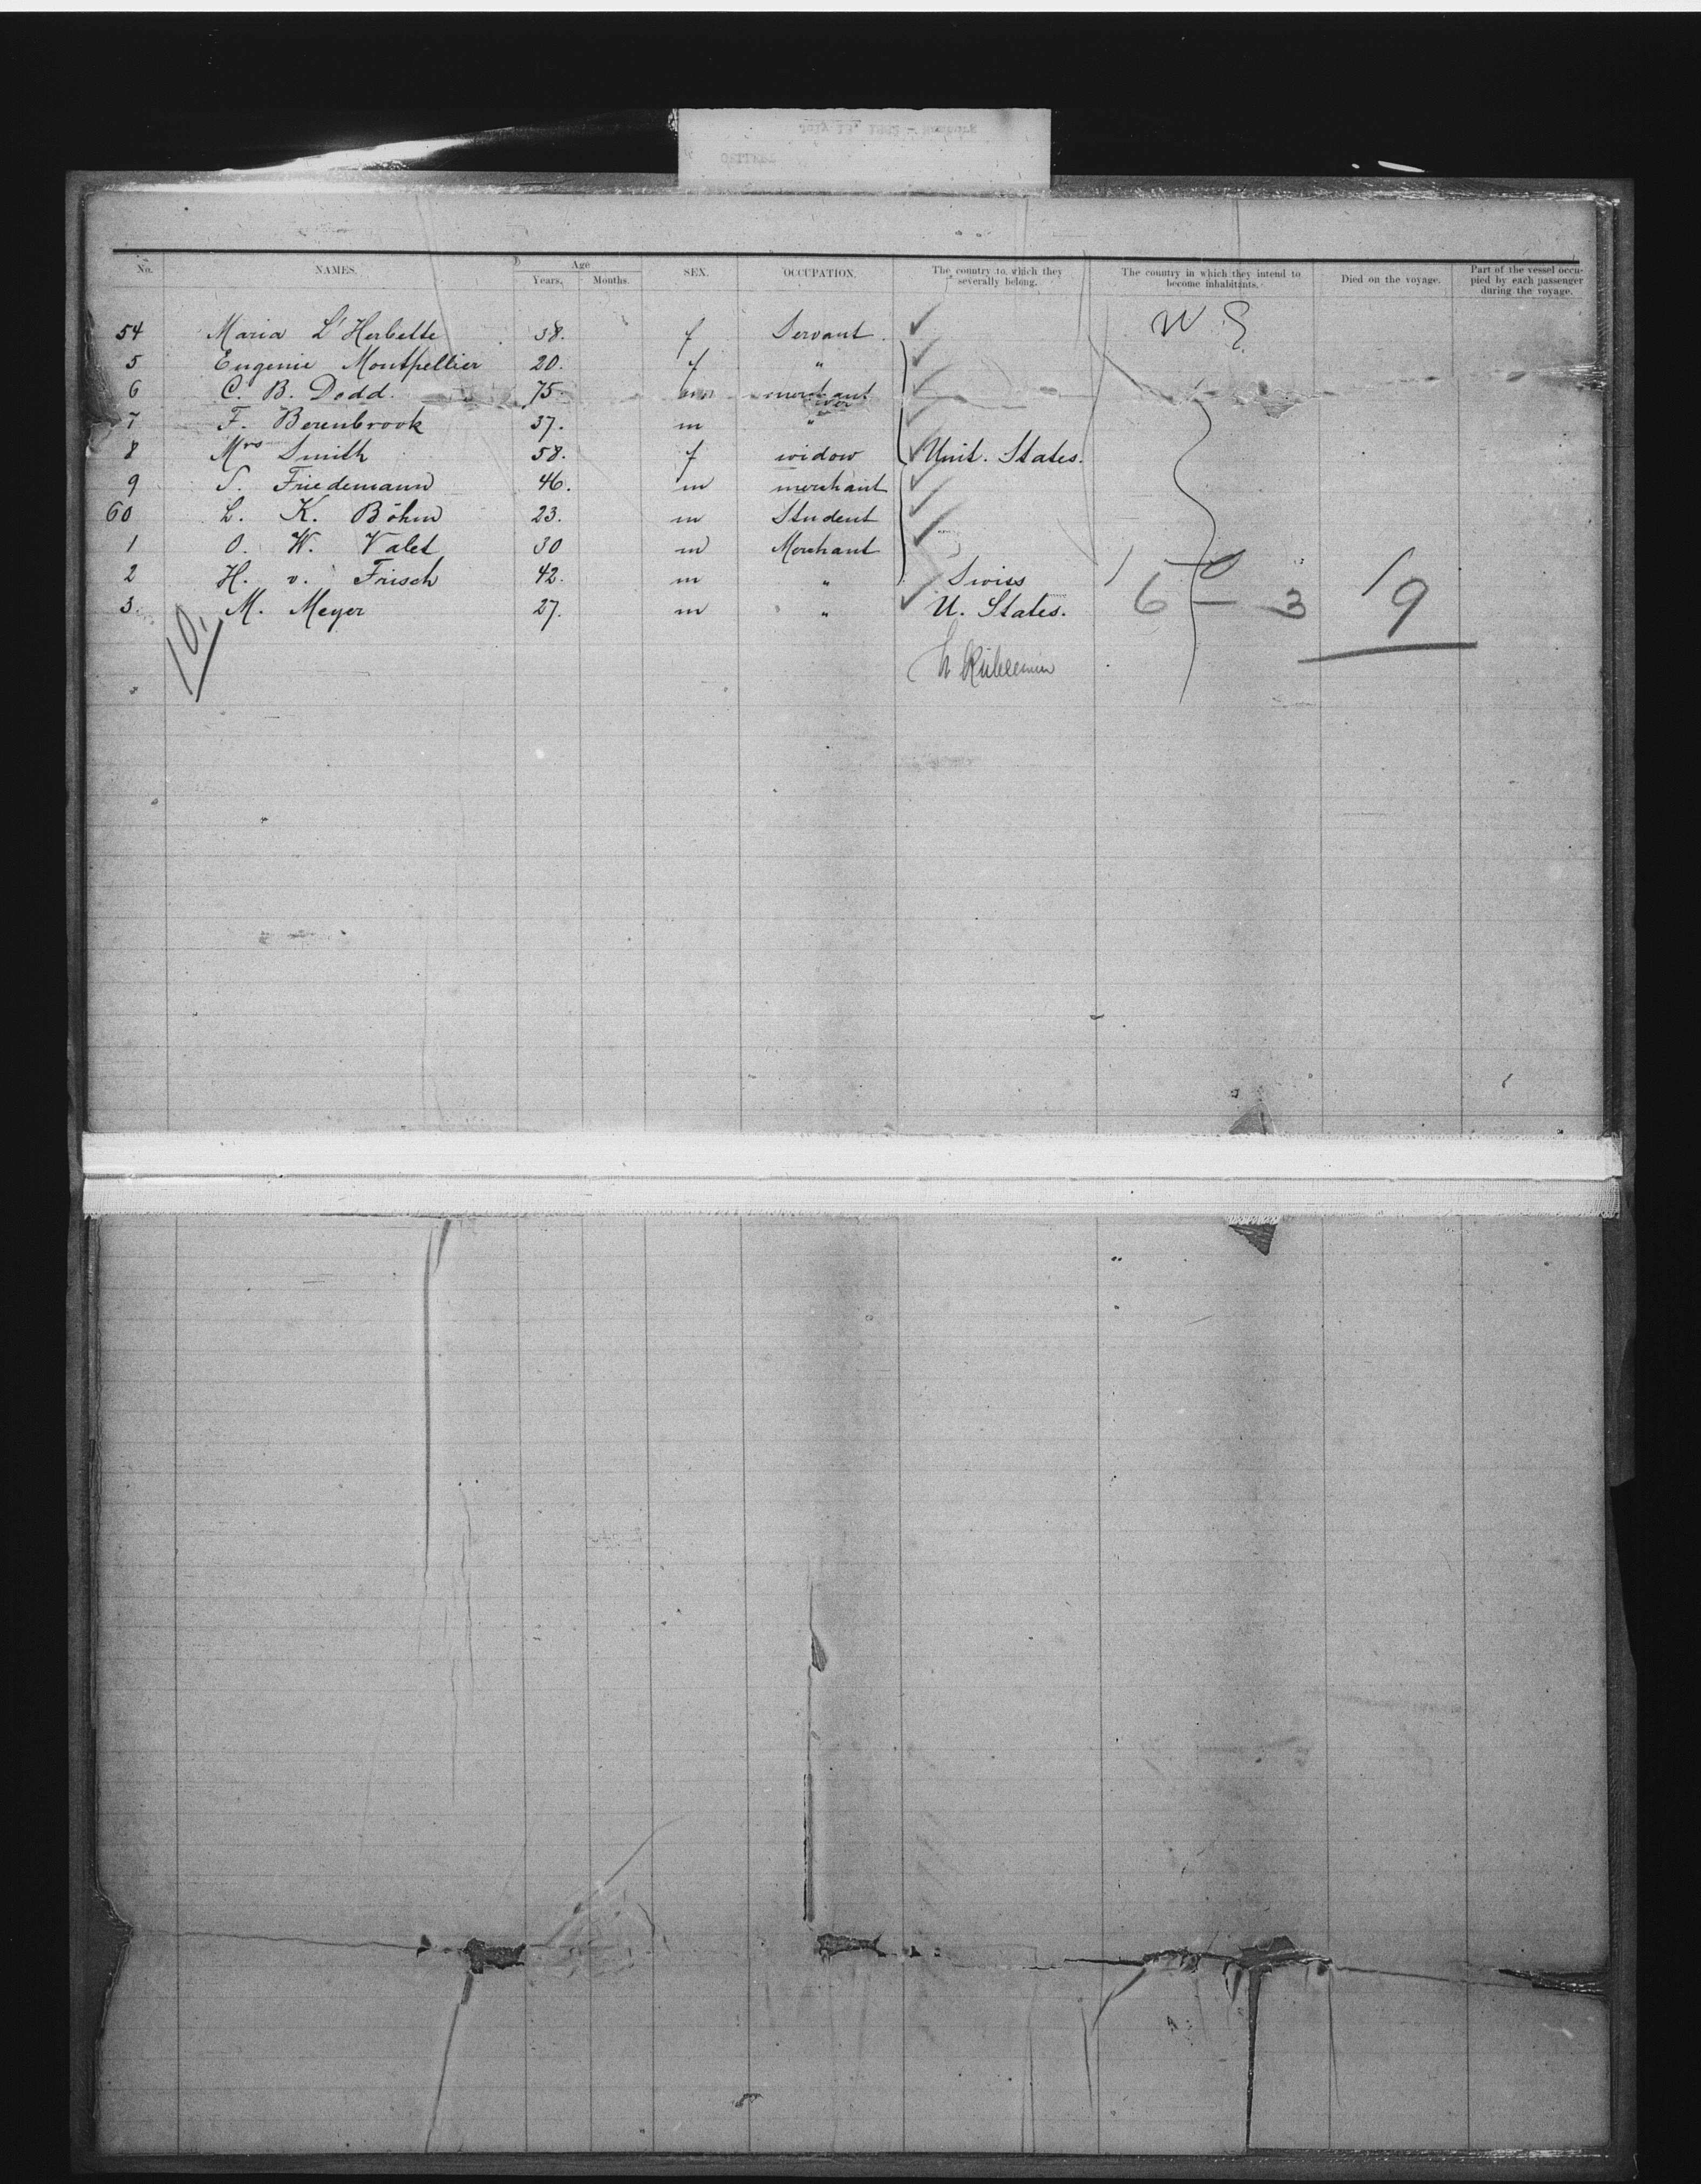 July 13, 1882 - Hamburg
No. NAMES. Age Years. Months. SEX. OCCUPATION. The country to which they severally belong. The country in which they intend to become inhabitants. Died on the voyage. Part of the vessel occupied by each passenger during the voyage.
54 Maria L'Herbette 38. f Servant.
5 Eugenie Montpellier 20. f "
6 C. B. Dodd. 75. m merchant
7 F. Berenbrook 37. m "
8 Mrs Smith 58. f widow Unit. States.
9 S. Friedemann 46. m merchant
60 L. K. Böhm 23. m Student
1 O. W. Valet 30 m Merchant
2 H. v. Frisch 42. m " Swiss
3. M. Meyer 27. m " U. States.
6 — 3 19
10,